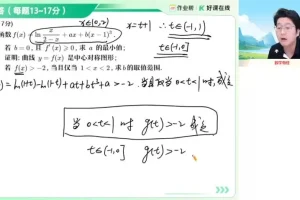 (每题13~17分)
作业分析
好课在线
x∈(0,2)
x=t+1 ∴t∈(-1,1)
函数 f(x)=ln x/(2-x)+ax+b(x-1)³.
t∈(-1,0]
若 b=0, 且 f'(x)≥0, 求 a 的最小值;
证明: 曲线 y=f(x) 是中心对称图形;
若 f(x)>-2, 当且仅当 1<x<2, 求 b 的取值范围.
=ln(1+t)-ln(1-t)+at+bt³+a>-2. 当且仅当 0<t<1 时, 成立
当 0<t<1 时 g(t)>-2 成立
t∈(-1,0] g(t)>-2